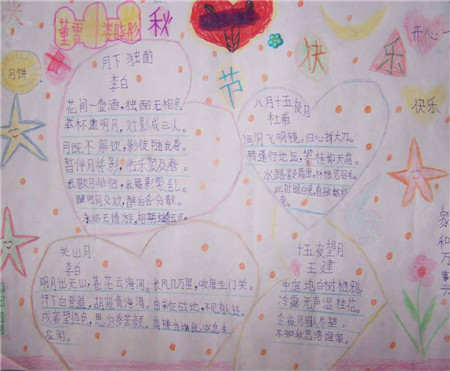 秋
节
快
乐
开心一
快乐
月饼
月下独酌
李白
花间一壶酒,独酌无相亲
举杯邀明月,对影成三人。
月既不解饮,影徒随我身。
暂伴月将影,行乐须及春。
我歌月徘徊,我舞影零乱。
醒时同交欢,醉后各分散。
永结无情游,相期邈云汉。
八月十五夜月
杜甫
满目飞明镜,归心折大刀。
转蓬行地远,攀桂仰天高。
水路疑霜雪,林栖见羽毛。
此时瞻白兔,直欲数秋
毫。
关山月
李白
明月出天山,苍茫云海间。长风几万里,吹度玉门关。
汉下白登道,胡窥青海湾。由来征战地,不见有人还。
戍客望边色,思归多苦颜。高楼当此夜,叹息未
应闲。
十五夜望月
王建
中庭地白树栖鸦,
冷露无声湿桂花。
今夜月明人尽望,
不知秋思落谁家。
家和万事兴